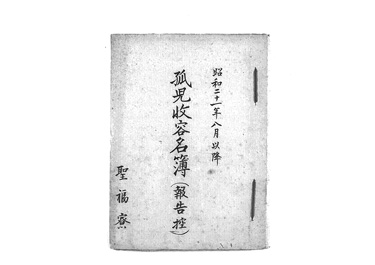 昭和二十一年八月以降
孤児収容名簿(報告控)
聖福寮